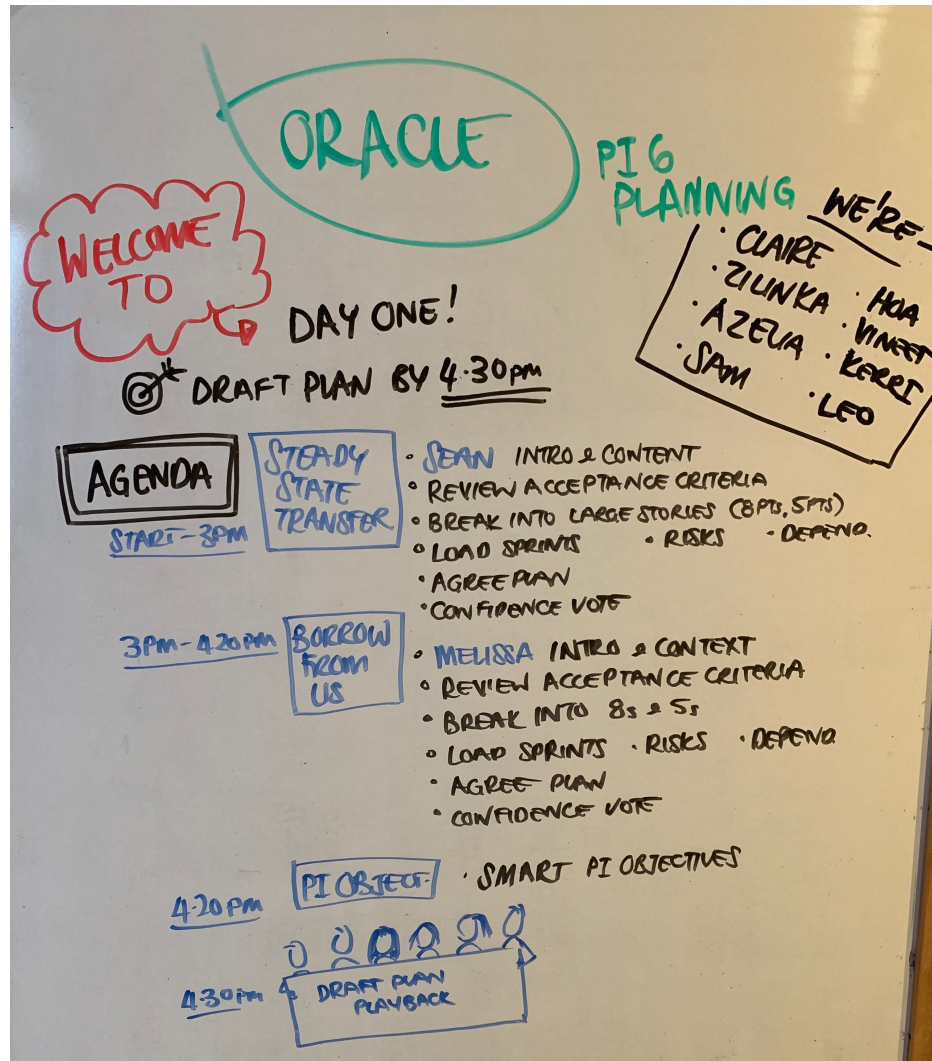 ORACLE
PI 6
PLANNING
WE'RE
WELCOME
TO
· CLAIRE
· ZILINKA
· AZELIA
· SAM
· HOA
· VINEET
· KERRI
· LEO
DAY ONE!
DRAFT PLAN BY 4·30pm
AGENDA
START - 3PM
STEADY
STATE
TRANSFER
· SEAN INTRO & CONTENT
· REVIEW ACCEPTANCE CRITERIA
· BREAK INTO LARGE STORIES (8PTS, 5PTS)
· LOAD SPRINTS · RISKS · DEPEND.
· AGREE PLAN
· CONFIDENCE VOTE
3PM - 4·20PM
BORROW
FROM
US
· MELISSA INTRO & CONTEXT
· REVIEW ACCEPTANCE CRITERIA
· BREAK INTO 8s & 5s
· LOAD SPRINTS · RISKS · DEPEND.
· AGREE PLAN
· CONFIDENCE VOTE
4·20pm
PI OBJECT.
· SMART PI OBJECTIVES
4·30pm
DRAFT PLAN
PLAYBACK